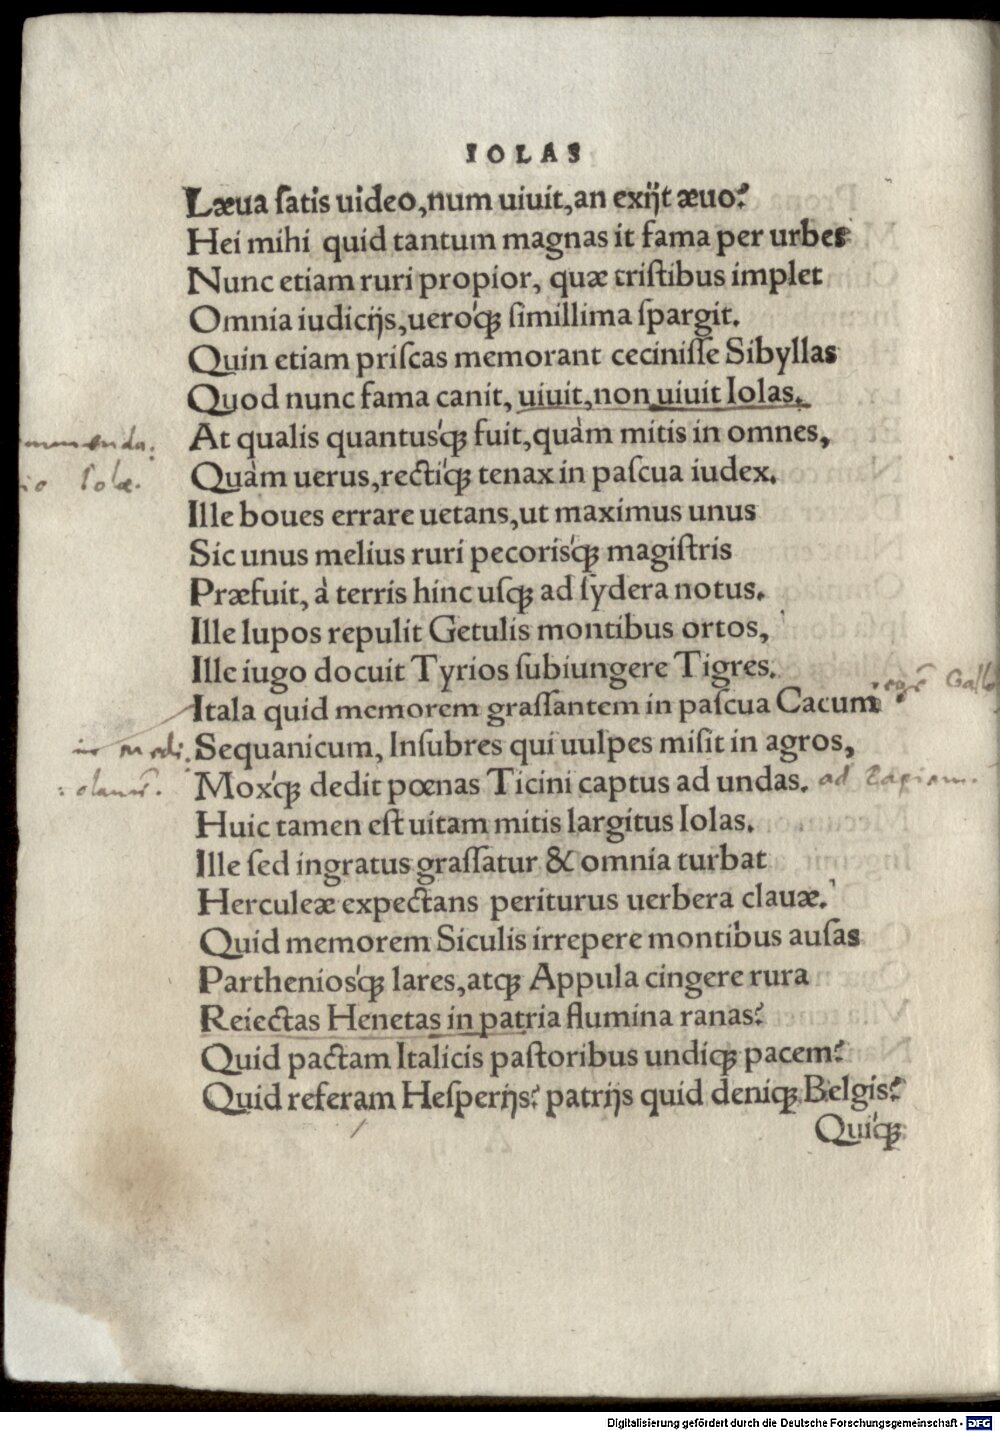 IOLAS
Læua ſatis uideo, num uiuit, an exijt æuo?
Hei mihi quid tantum magnas it fama per urbes
Nunc etiam ruri propior, quæ triſtibus implet
Omnia iudicijs, ueroq́ꝫ ſimillima ſpargit.
Quin etiam priſcas memorant ceciniſſe Sibyllas
Quod nunc fama canit, uiuit, non uiuit Iolas.
At qualis quantusq́ꝫ fuit, quàm mitis in omnes,
Quàm uerus, rectiq́ꝫ tenax in paſcua iudex.
mmenda:
io Iolæ.
Ille boues errare uetans, ut maximus unus
Sic unus melius ruri pecorisq́ꝫ magiſtris
Præfuit, à terris hinc uſqꝫ ad ſydera notus.
Ille lupos repulit Getulis montibus ortos,
Ille iugo docuit Tyrios ſubiungere Tigres.
Itala quid memorem graſſantem in paſcua Cacum
regē Gallo
Sequanicum, Inſubres qui uulpes miſit in agros,
in medi:
:olanū.
Moxq́ꝫ dedit pœnas Ticini captus ad undas.
ad Papiam.
Huic tamen eſt uitam mitis largitus Iolas.
Ille ſed ingratus graſſatur & omnia turbat
Herculeæ expectans periturus uerbera clauæ.
Quid memorem Siculis irrepere montibus auſas
Partheniosq́ꝫ lares, atqꝫ Appula cingere rura
Reiectas Henetas in patria flumina ranas?
Quid pactam Italicis paſtoribus undiqꝫ pacem?
Quid referam Heſperijs? patrijs quid deniqꝫ Belgis?
Quiq́ꝫ
Digitalisierung gefördert durch die Deutsche Forschungsgemeinschaft - DFG